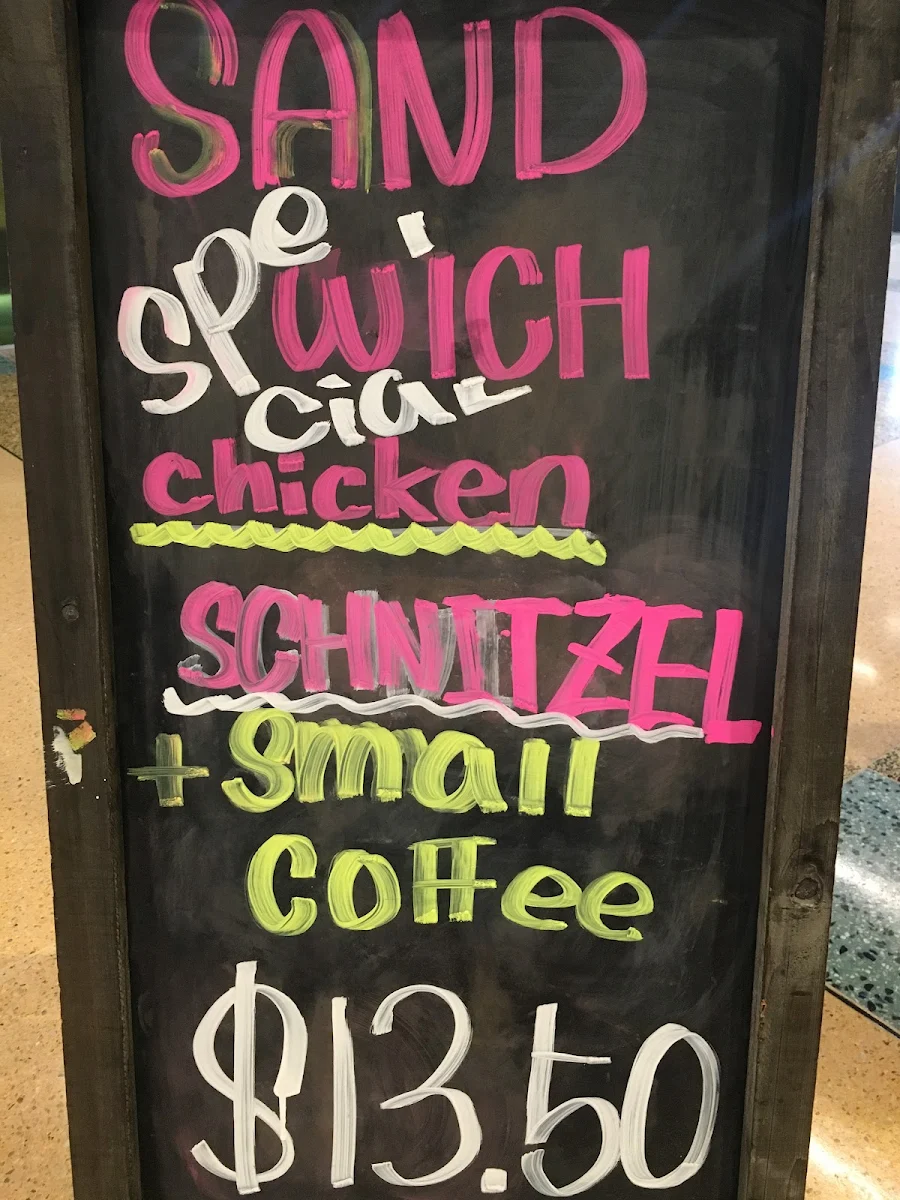 SAND
WiCH
spe
cial
chicken
SCHNITZEL
+ small
Coffee
$13.50